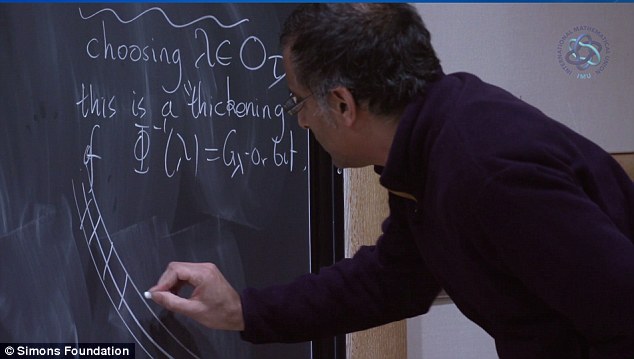 choosing λ∈O_I
this is a "thickening
of Φ⁻¹(λ)=G_λ-orbit.
INTERNATIONAL MATHEMATICAL UNION
IMU
© Simons Foundation